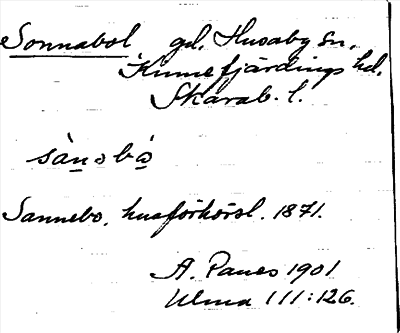 Sonnabol gd. Husaby sn.
Kinnefjärdings hd.
Skarab. l.
sànəbå̱
Sannebo. husförhörsl. 1871.
A. Panes 1901
Ulma 111:126.